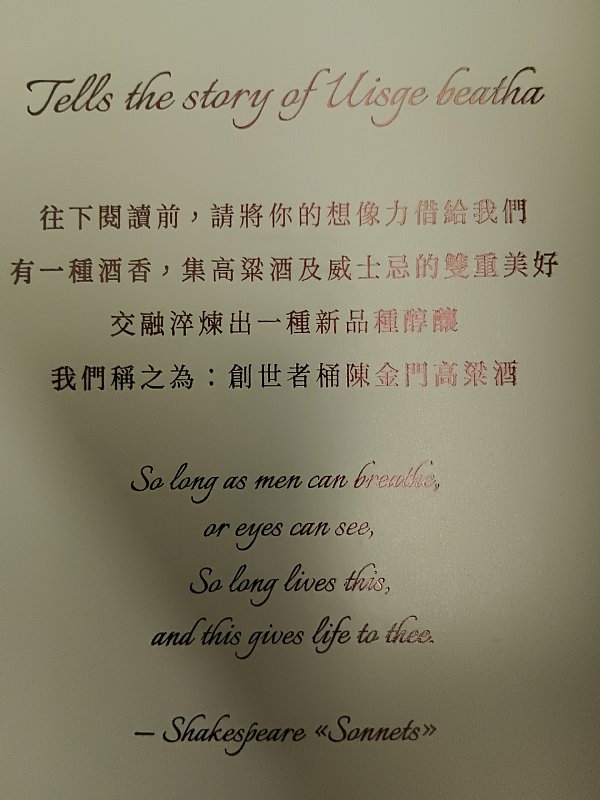 Tells the story of Uisge beatha
往下閱讀前，請將你的想像力借給我們
有一種酒香，集高粱酒及威士忌的雙重美好
交融淬煉出一種新品種醇釀
我們稱之為：創世者桶陳金門高粱酒
So long as men can breathe,
or eyes can see,
So long lives this,
and this gives life to thee.
— Shakespeare «Sonnets»